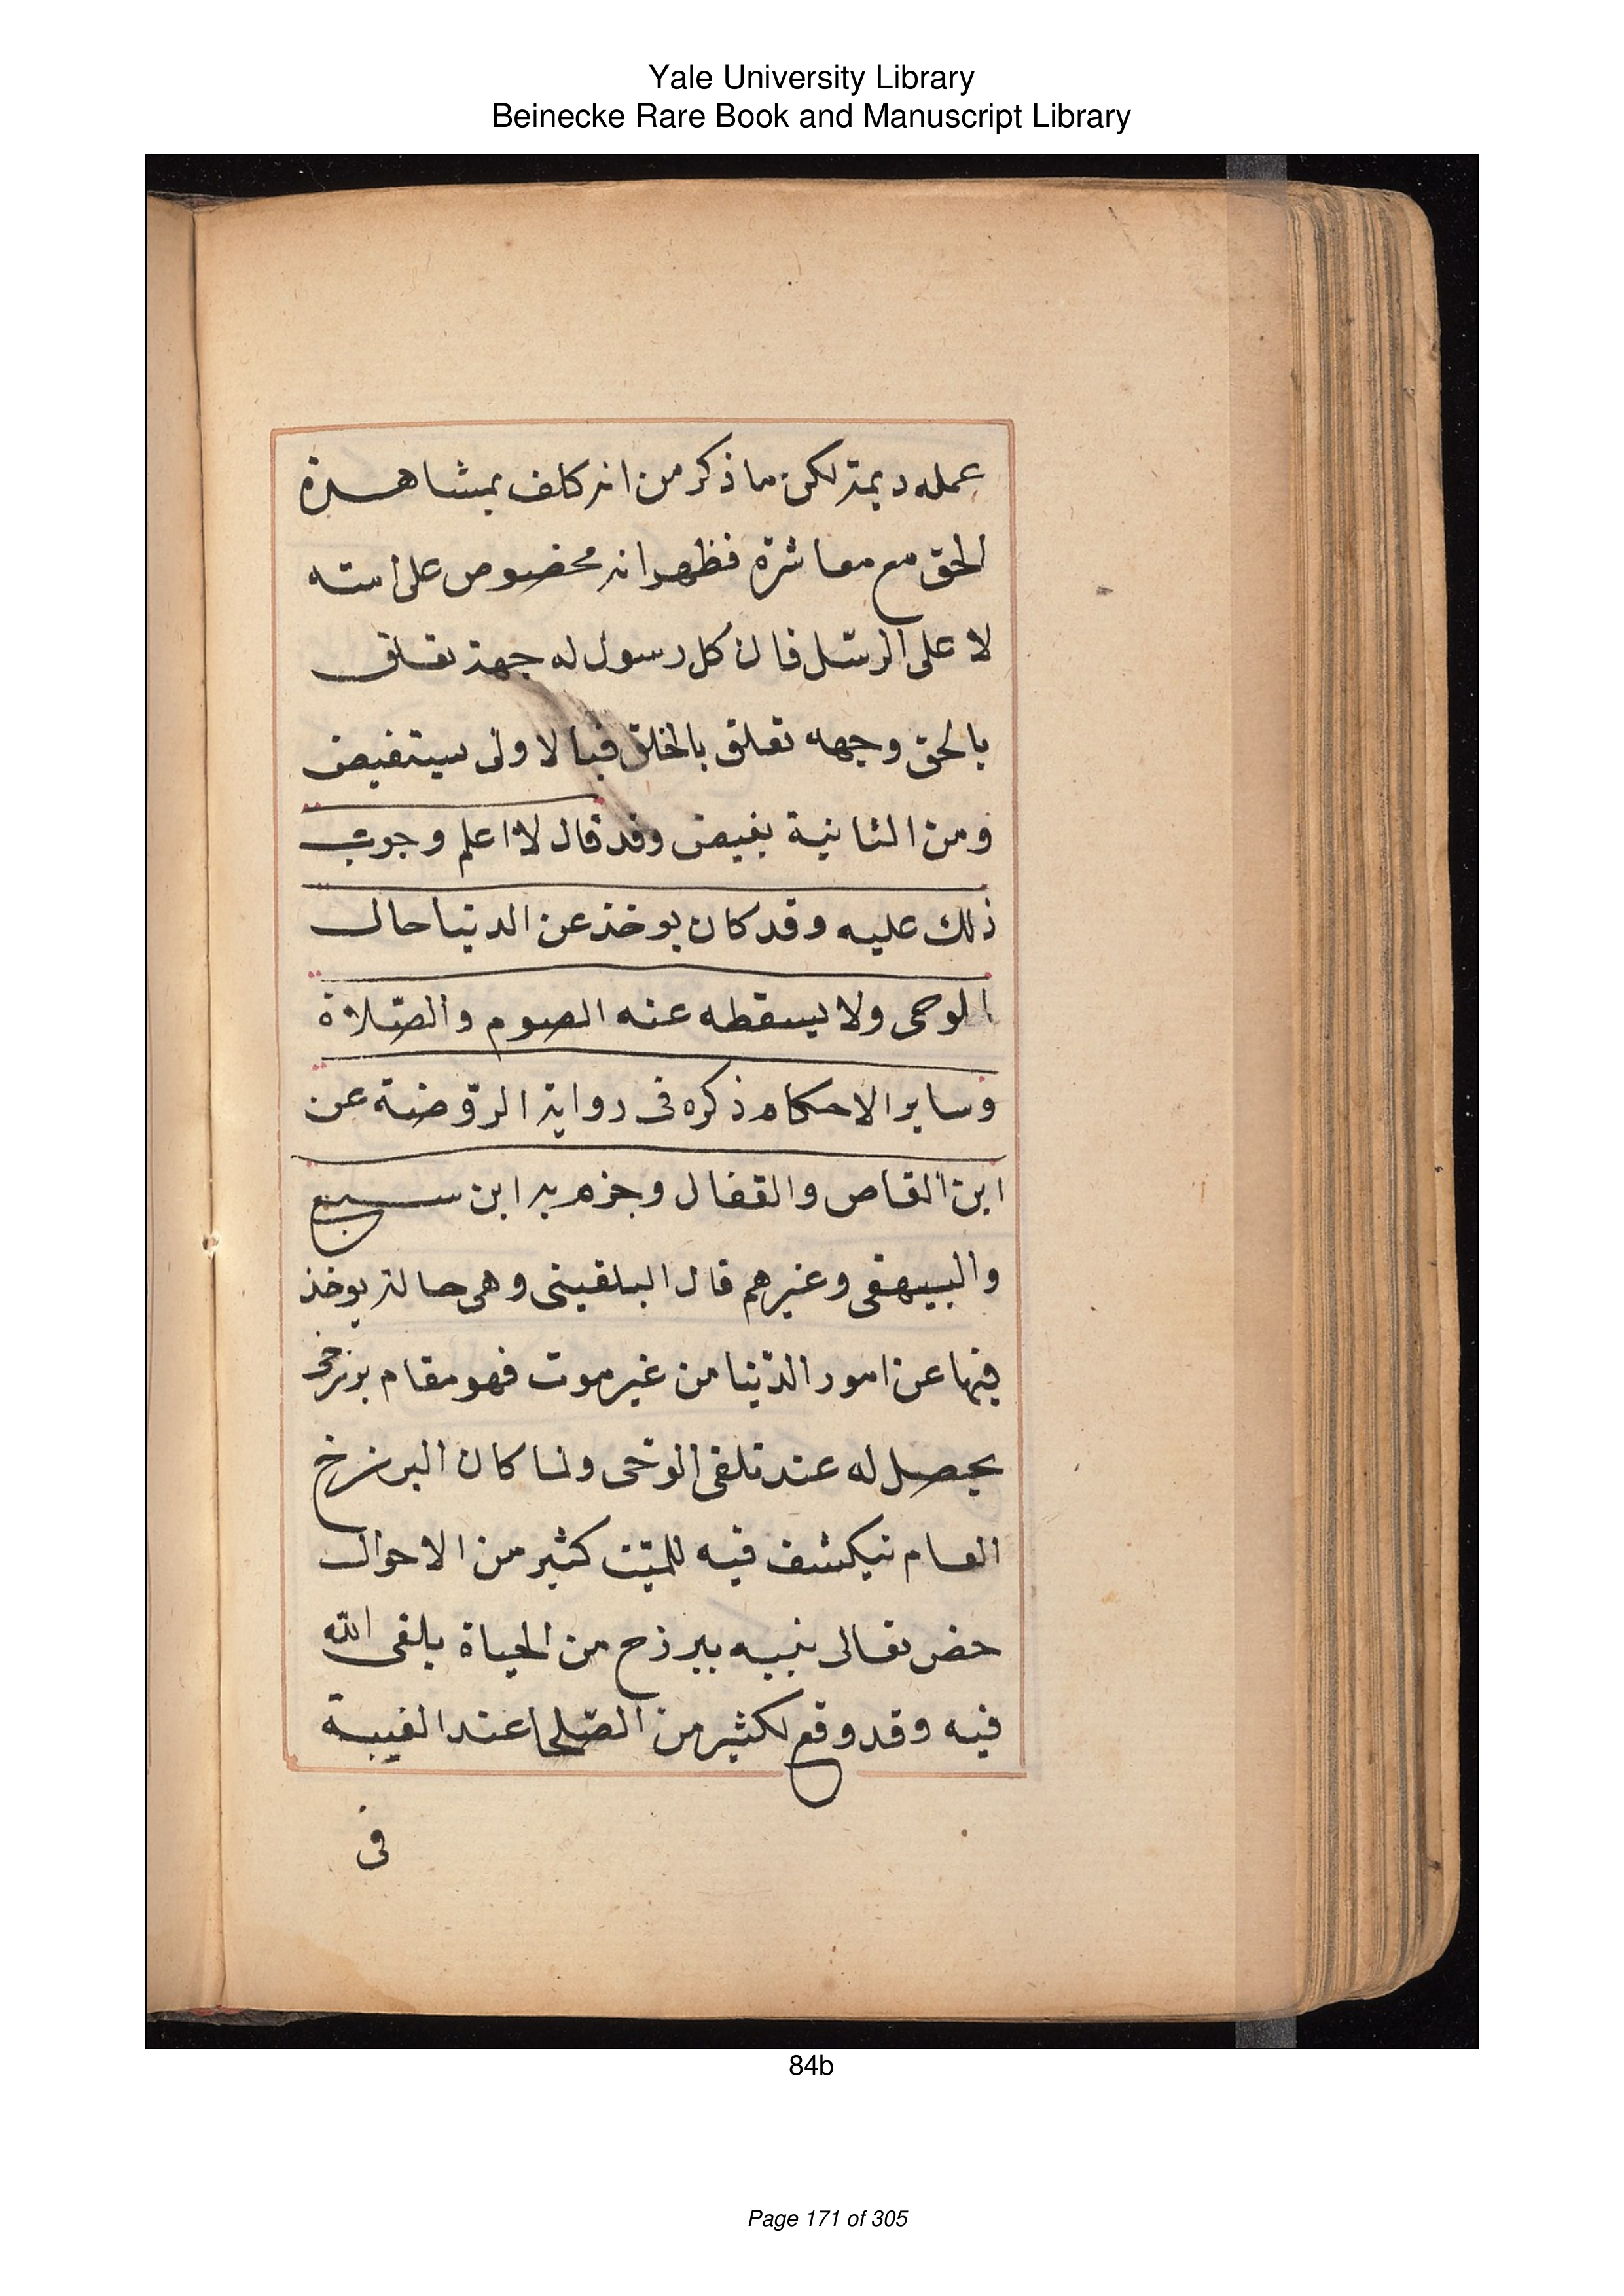 Yale University Library
Beinecke Rare Book and Manuscript Library
عمله ديمة لكن ما ذكر من انه كلف بمشاهدة
الحق مع معاشرة فظهر انه مخصوص على امته
لا على الرسّل فان كل رسول له جهة تعلق
بالحق وجهه تعلق بالخلق فبالاولى سيتفيض
ومن الثانية يفيض وقد قال لا اعلم وجوب
ذلك عليه وقد كان يوخذ عن الدنيا حال
الوحى ولا يسقطه عنه الصوم والصّلاة
وساير الاحكام ذكره فى رواية الرّوضة عن
ابن القاص والقفال وجزم به ابن سبع
والبيهقى وغيرهم قال البلقينى وهى حالة يوخذ
فيها عن امور الدّنيا من غير موت فهو مقام برزخى
يحصل له عند تلقى الوحى ولما كان البرزخ
العام نيكشف فيه للميّت كثير من الاحوال
خص تعالى نبيه ببرزح من الحياة يلقى الله
فيه وقد وقع لكثير من الصّلحا عند الغيبة
فى
84b
Page 171 of 305